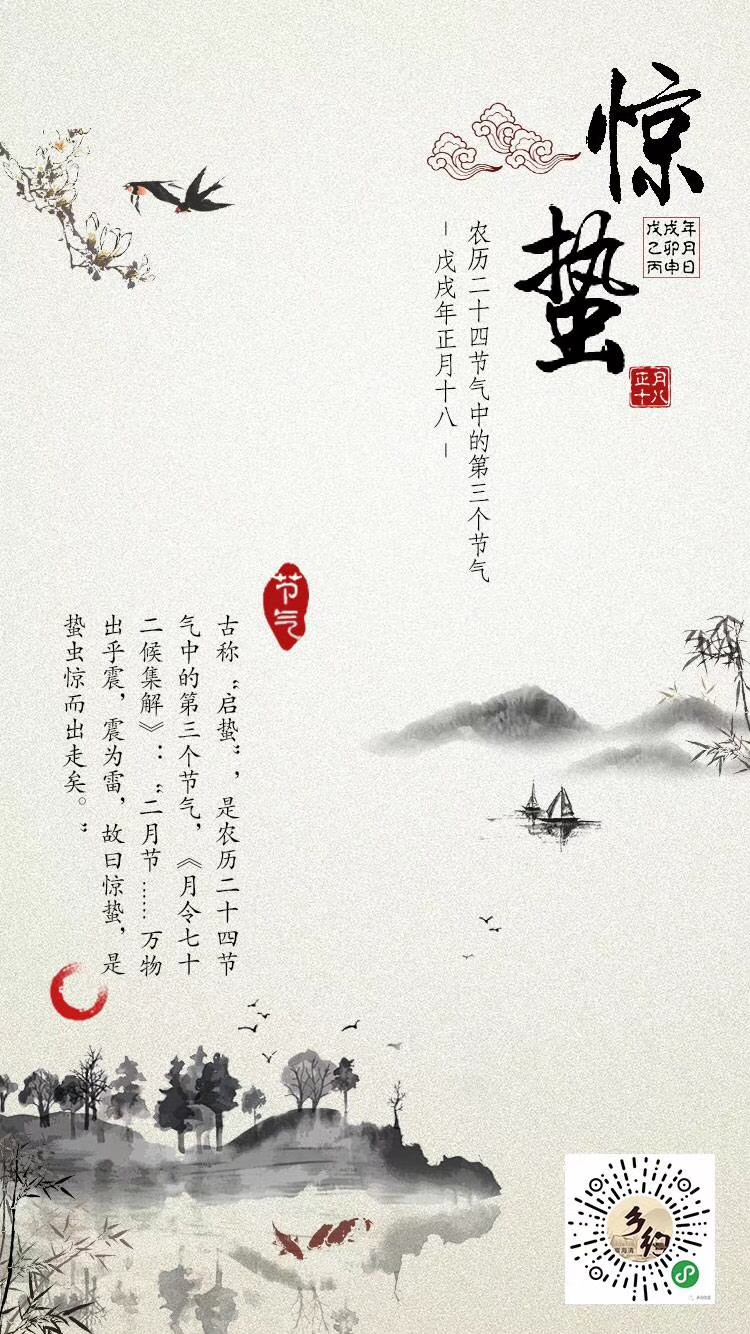 惊蛰
戊戌年
乙卯月
丙申日
正月
十八
农历二十四节气中的第三个节气
– 戊戌年正月十八 –
节气
古称“启蛰”，是农历二十四节
气中的第三个节气，《月令七十
二候集解》：“二月节……万物
出乎震，震为雷，故曰惊蛰，是
蛰虫惊而出走矣。”
乡约